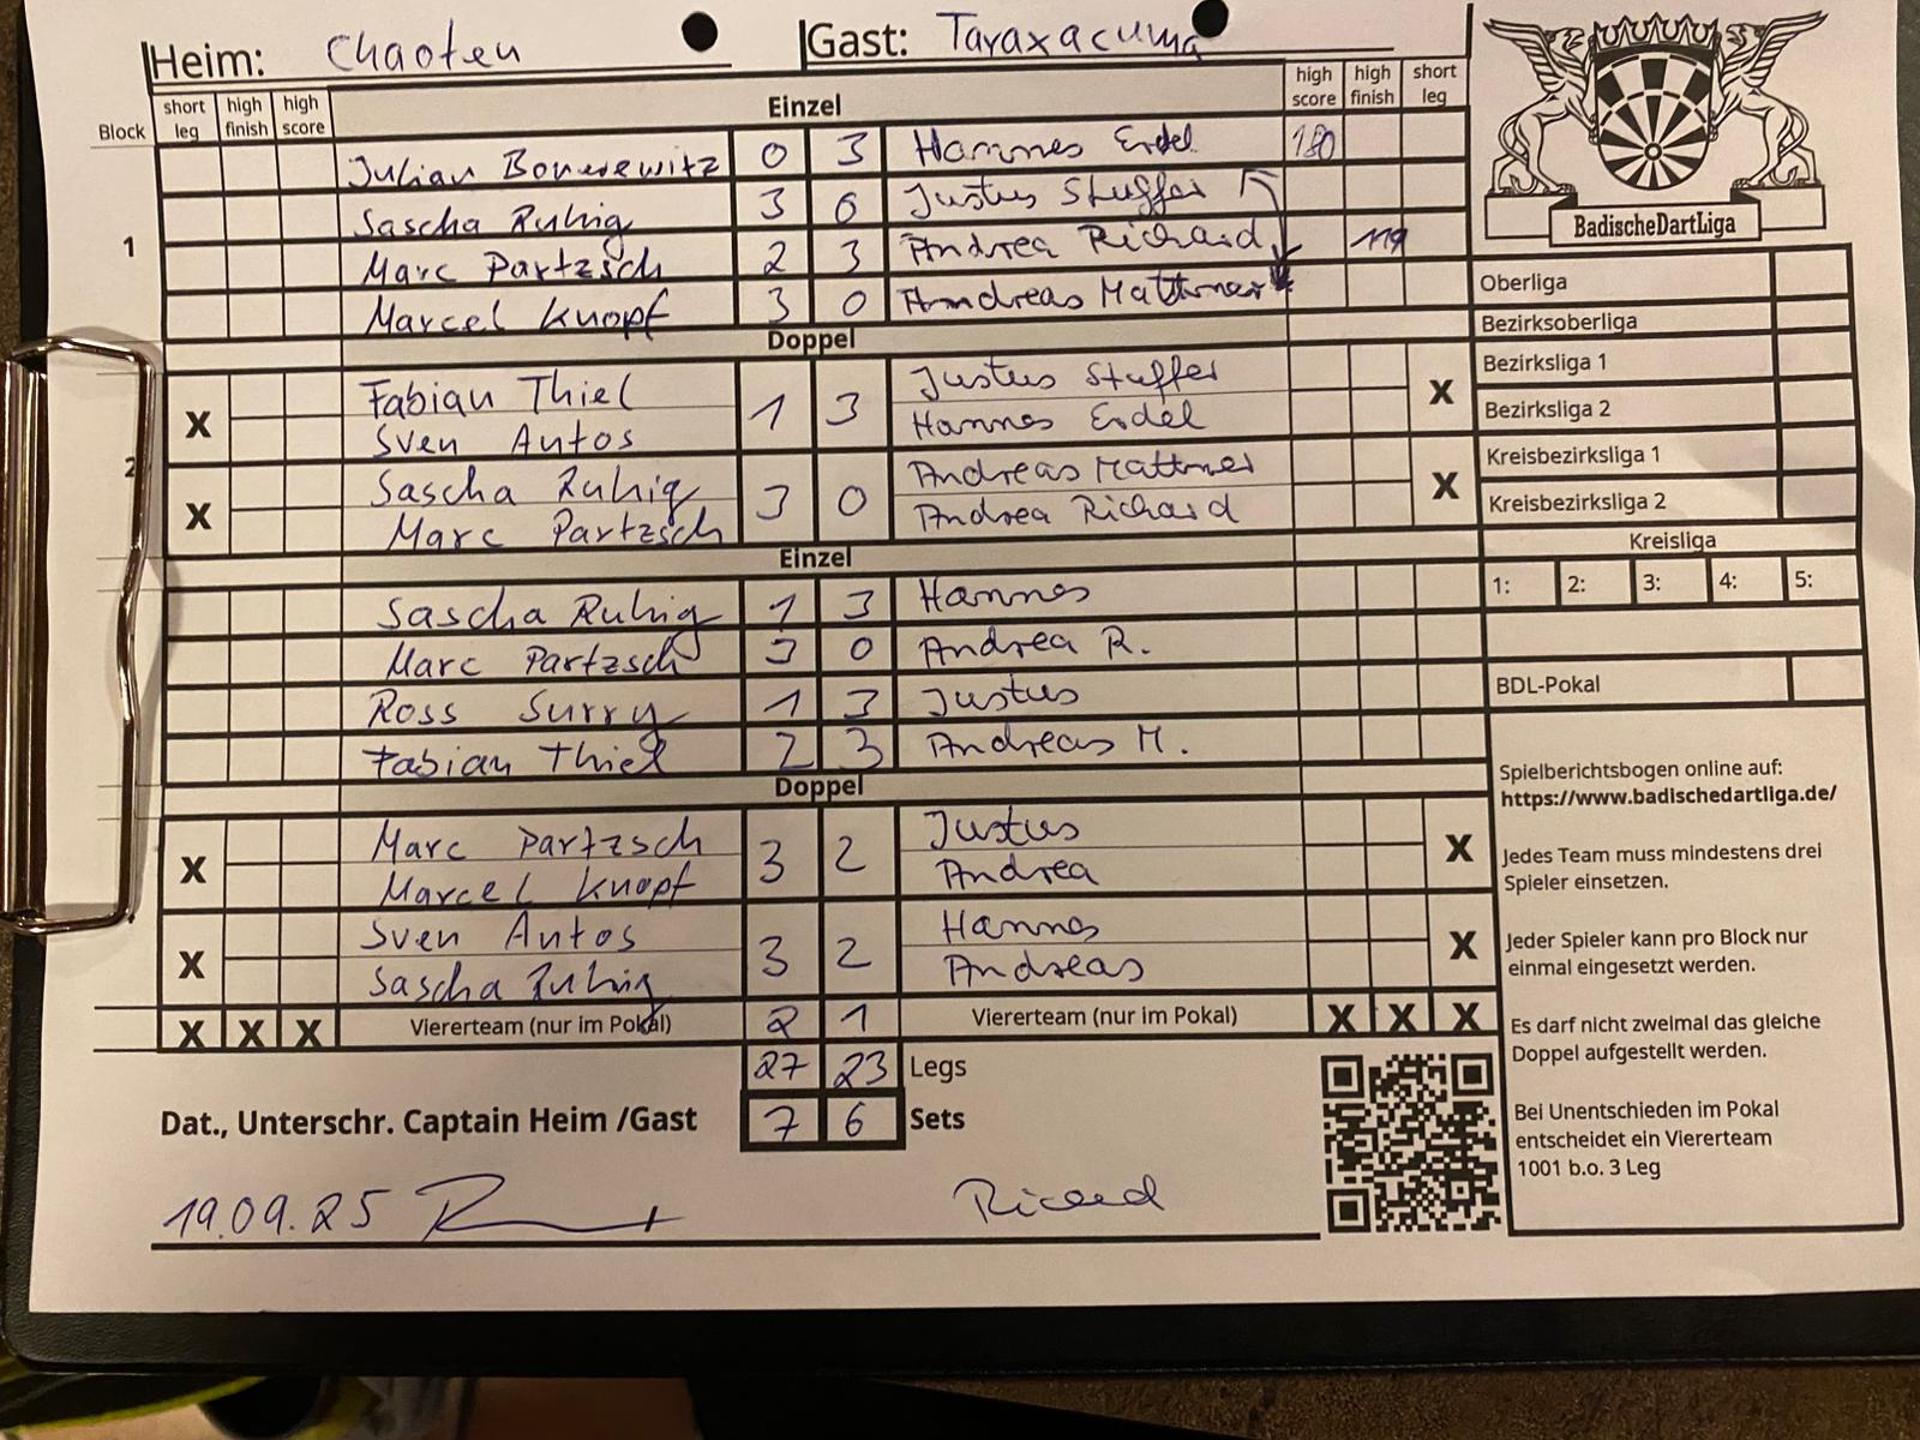 Heim: Chaoten Gast: Taraxacuma
Block short leg high finish high score Einzel high score high finish short leg
1
Julian Bonerewitz 0 3 Hannes Erdel 180
Sascha Ruhig 3 0 Justus Stuffer
Marc Partzsch 2 3 Andrea Richard 119
Marcel Knopf 3 0 Andreas Mattmer
Doppel
2
X Fabian Thiel 1 3 Justus Stuffer X
Sven Antos Hannes Erdel
X Sascha Ruhig 3 0 Andreas Mattmer X
Marc Partzsch Andrea Richard
Einzel
Sascha Ruhig 1 3 Hannes
Marc Partzsch 3 0 Andrea R.
Ross Surry 1 3 Justus
Fabian Thiel 2 3 Andreas M.
Doppel
X Marc Partzsch 3 2 Justus X
Marcel Knopf Andrea
X Sven Antos 3 2 Hannes X
Sascha Ruhig Andreas
X X X Viererteam (nur im Pokal) 2 1 Viererteam (nur im Pokal) X X X
27 23 Legs
Dat., Unterschr. Captain Heim /Gast 7 6 Sets
19.09.25 Ricard
BadischeDartLiga
Oberliga
Bezirksoberliga
Bezirksliga 1
Bezirksliga 2
Kreisbezirksliga 1
Kreisbezirksliga 2
Kreisliga
1: 2: 3: 4: 5:
BDL-Pokal
Spielberichtsbogen online auf:
https://www.badischedartliga.de/
Jedes Team muss mindestens drei
Spieler einsetzen.
Jeder Spieler kann pro Block nur
einmal eingesetzt werden.
Es darf nicht zweimal das gleiche
Doppel aufgestellt werden.
Bei Unentschieden im Pokal
entscheidet ein Viererteam
1001 b.o. 3 Leg